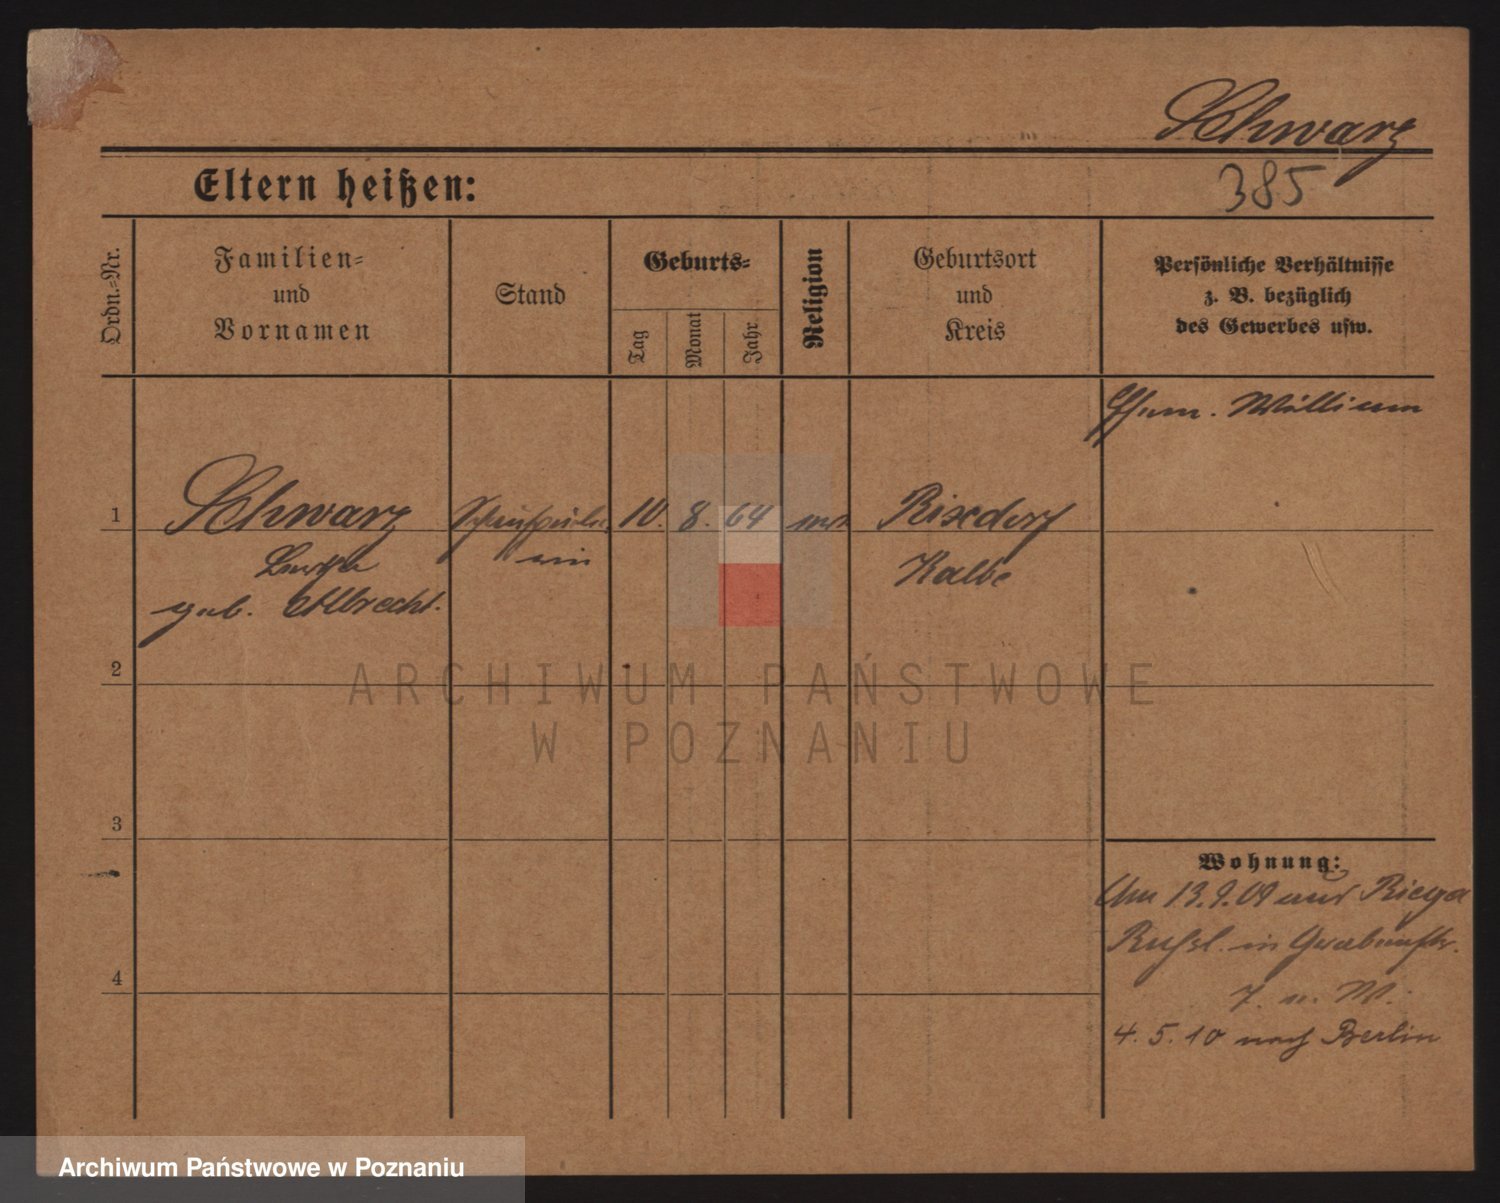 Schwarz
385
Eltern heißen:
Ordn.=Nr.
Familien=
und
Vornamen
Stand
Geburts=
Tag
Monat
Jahr
Religion
Geburtsort
und
Kreis
Persönliche Verhältnisse
z. B. bezüglich
des Gewerbes usw.
Ehem. William
1
Schwarz
Schauspieler
10.
8.
64
Rixdorf
in
Kalbe
geb. Albrecht.
2
ARCHIWUM PAŃSTWOWE
W POZNANIU
3
Wohnung:
Am 13.9.09 aus
4
4. 5. 10 nach Berlin
Archiwum Państwowe w Poznaniu